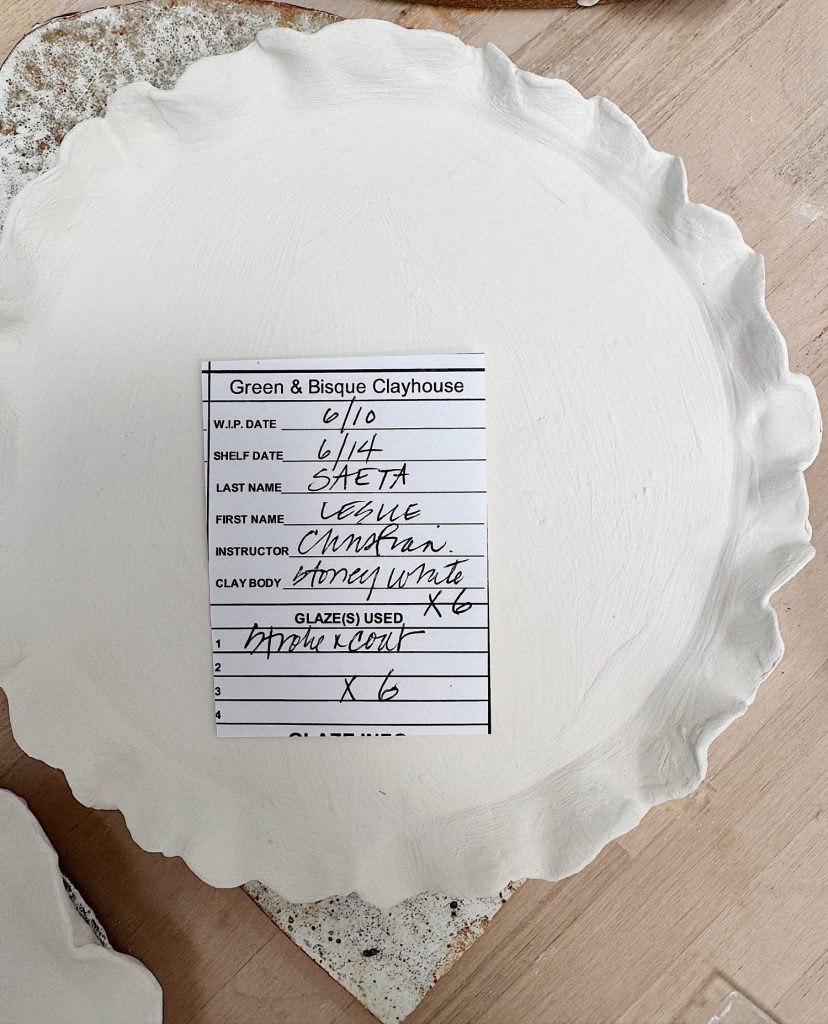 Green & Bisque Clayhouse
W.I.P. DATE 6/10
SHELF DATE 6/14
LAST NAME SAETA
FIRST NAME LESLIE
INSTRUCTOR Christian.
CLAY BODY Stoney White
x 6
GLAZE(S) USED
1 Stroke & coat
2
3 x 6
4
GLAZE INFO